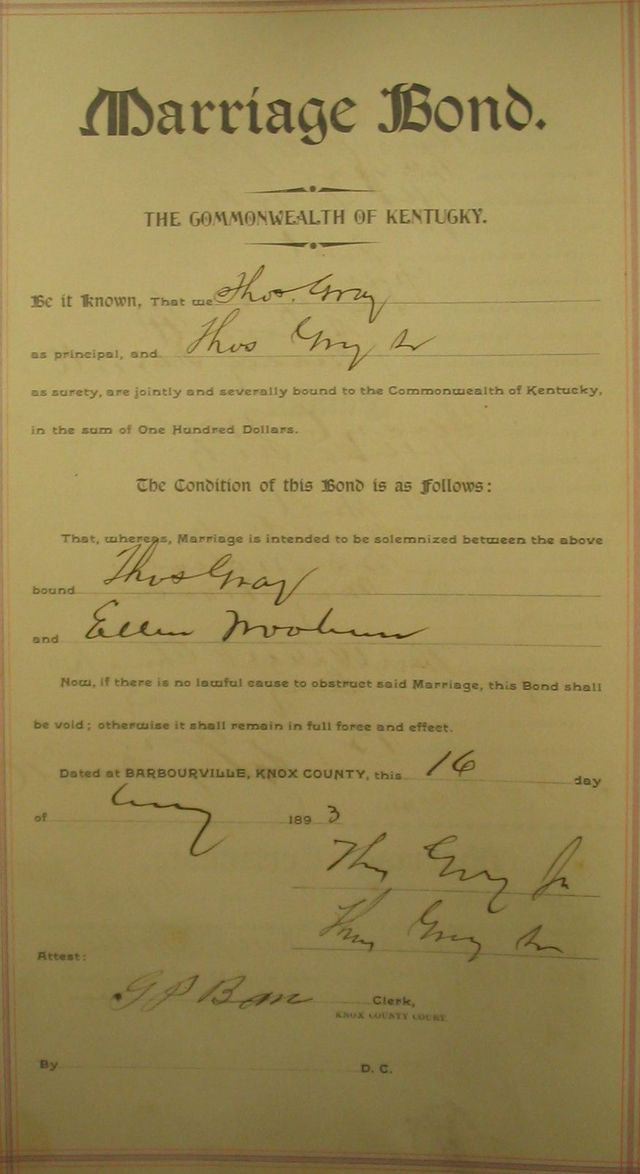 Marriage Bond.
THE COMMONWEALTH OF KENTUCKY.
Be it Known, That we Thos. Gray
as principal, and Thos Gray Sr
as surety, are jointly and severally bound to the Commonwealth of Kentucky,
in the sum of One Hundred Dollars.
The Condition of this Bond is as Follows:
That, whereas, Marriage is intended to be solemnized between the above
bound Thos Gray
and Ellen
Now, if there is no lawful cause to obstruct said Marriage, this Bond shall
be void; otherwise it shall remain in full force and effect.
Dated at BARBOURVILLE, KNOX COUNTY, this 16 day
of 1893
Thos Gray Jr
Thos Gray Sr
Attest:
G P Clerk,
KNOX COUNTY COURT
By D. C.